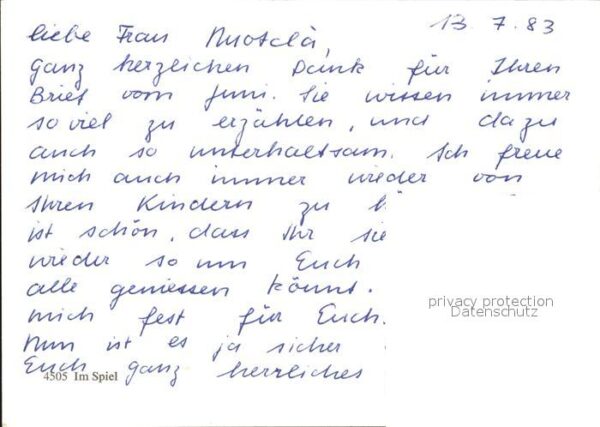 13. 7. 83
liebe Frau
ganz herzlichen Dank für Ihren
Brief vom Juni. Sie wissen immer
so viel zu erzählen, und dazu
auch so unterhaltsam. Ich freue
mich auch immer wieder von
Ihren Kindern zu
ist schön, dass Ihr sie
wieder so um Euch
alle geniessen könnt.
mich fest für Euch.
Nun ist es ja sicher
Euch ganz herrliches
4505 Im Spiel
privacy protection
Datenschutz